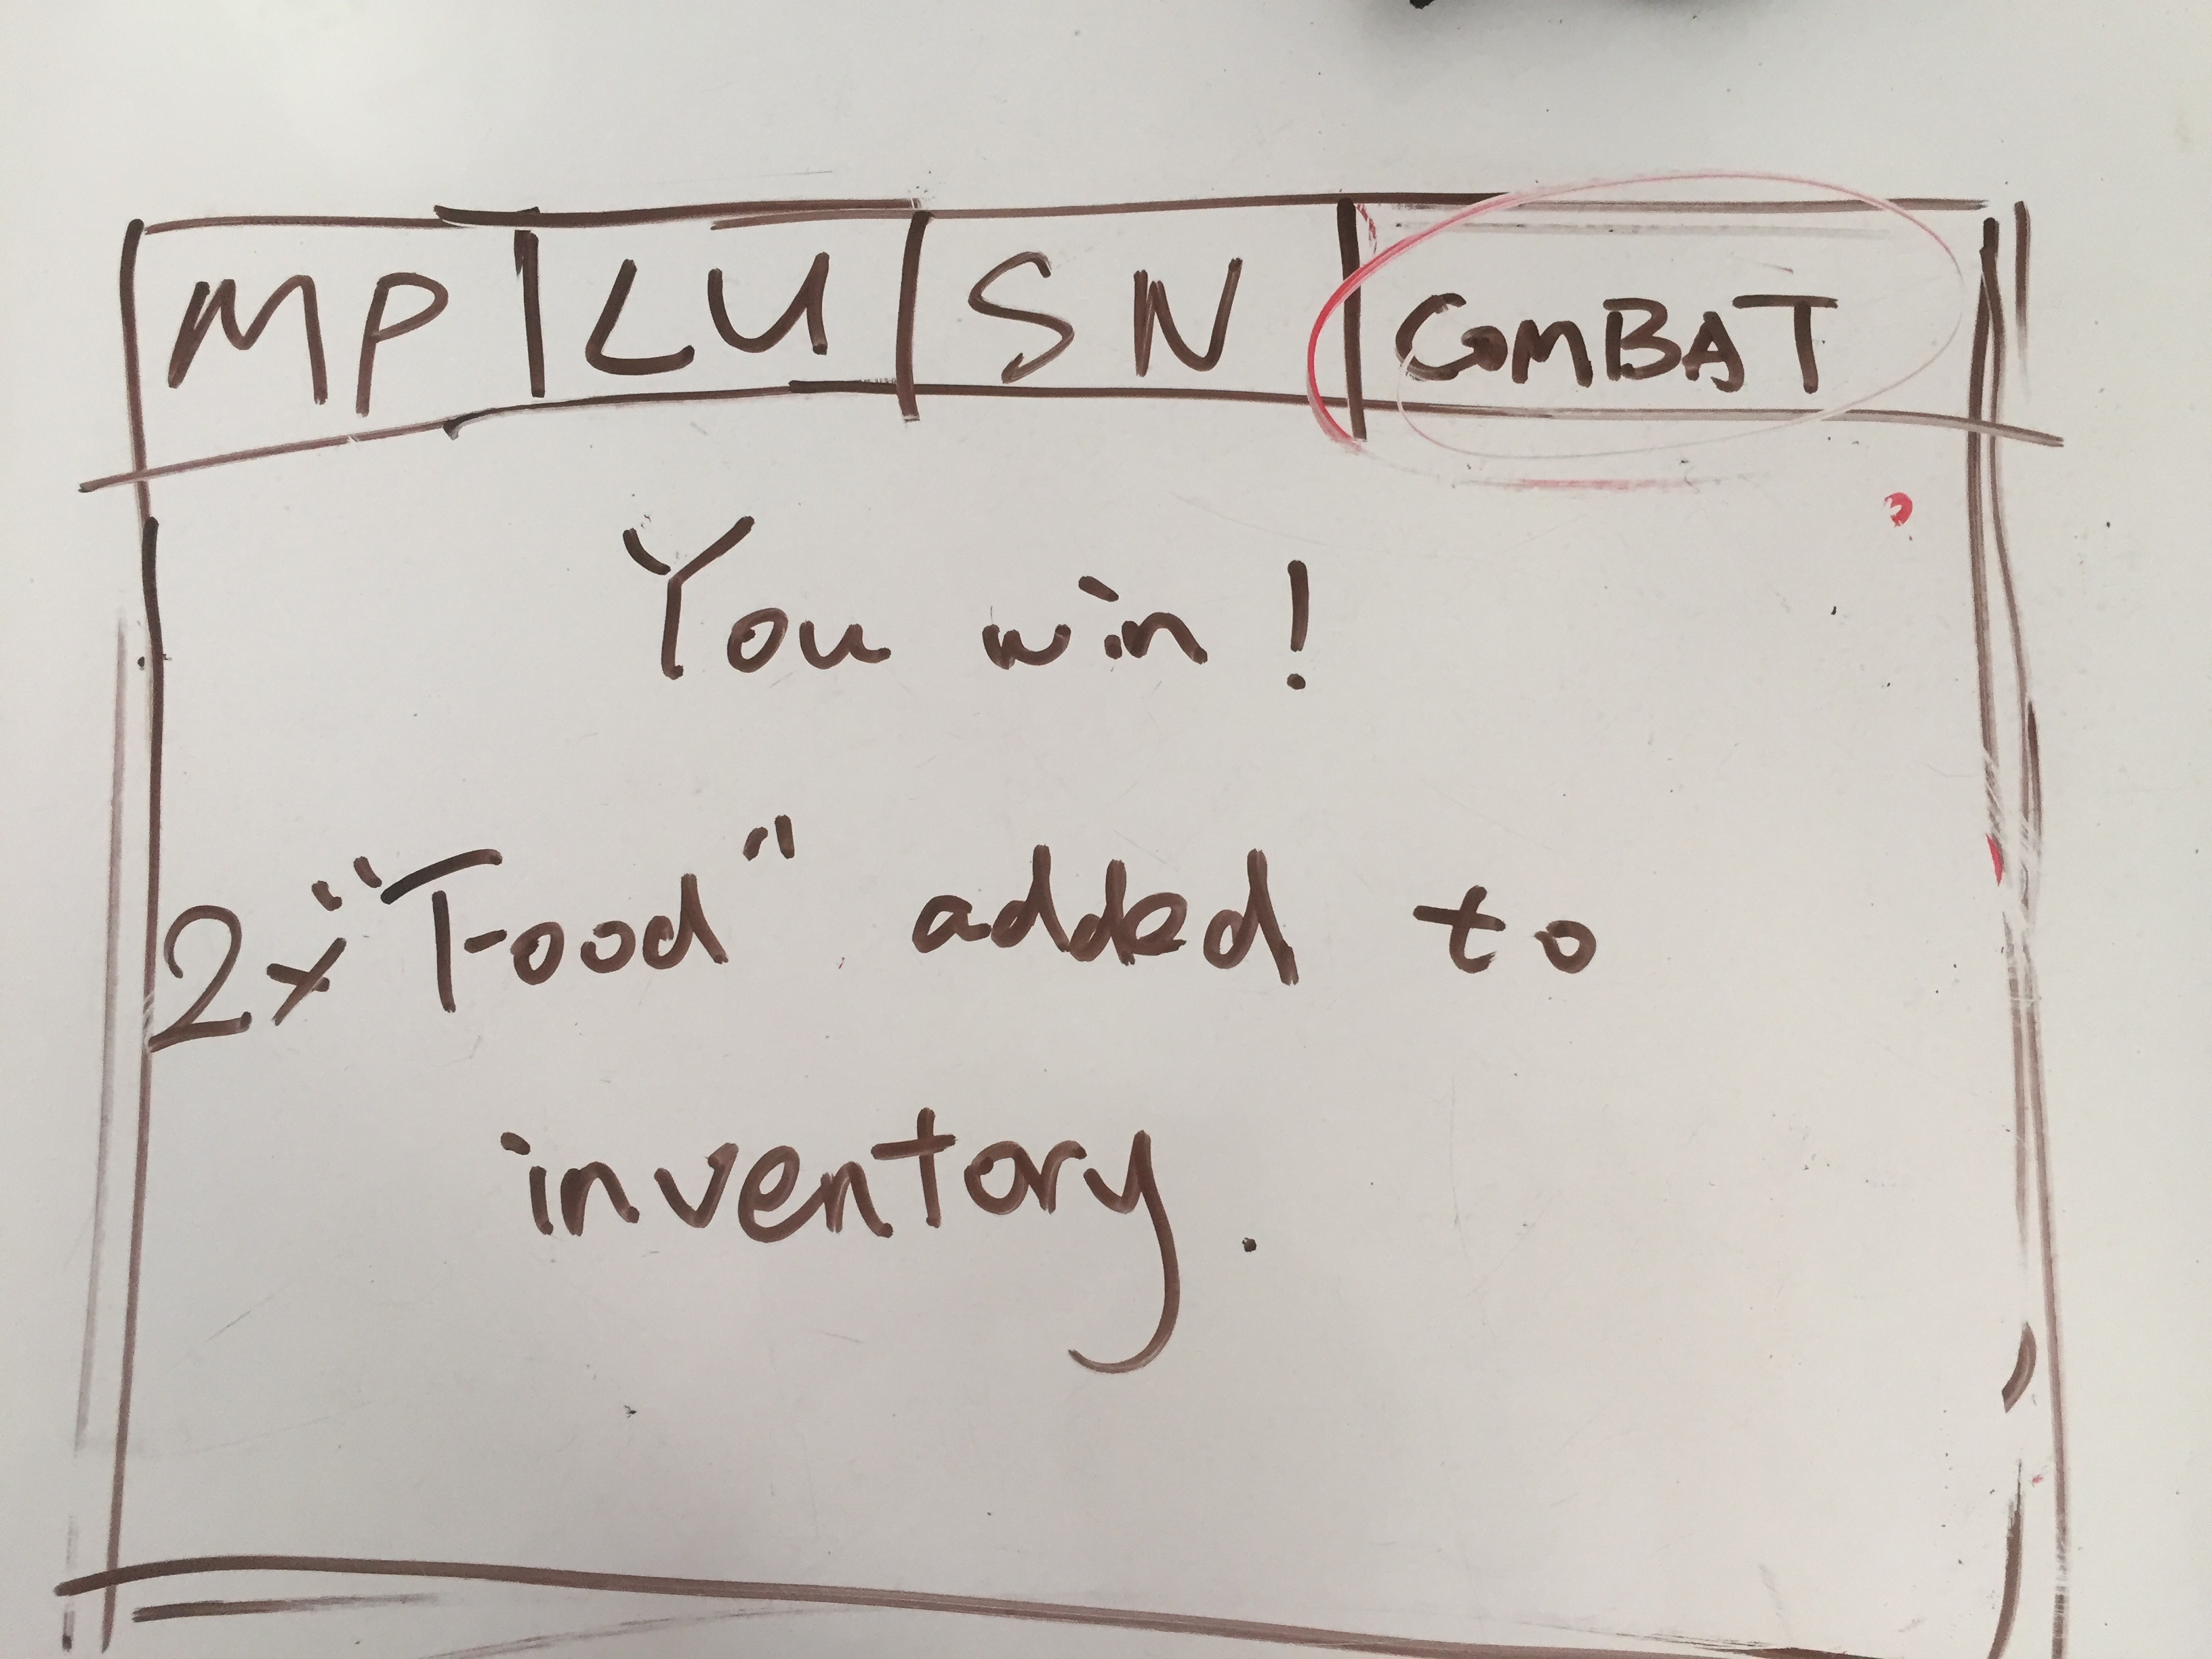 MP LU SN COMBAT
You win!
2x "Food" added to
inventory.